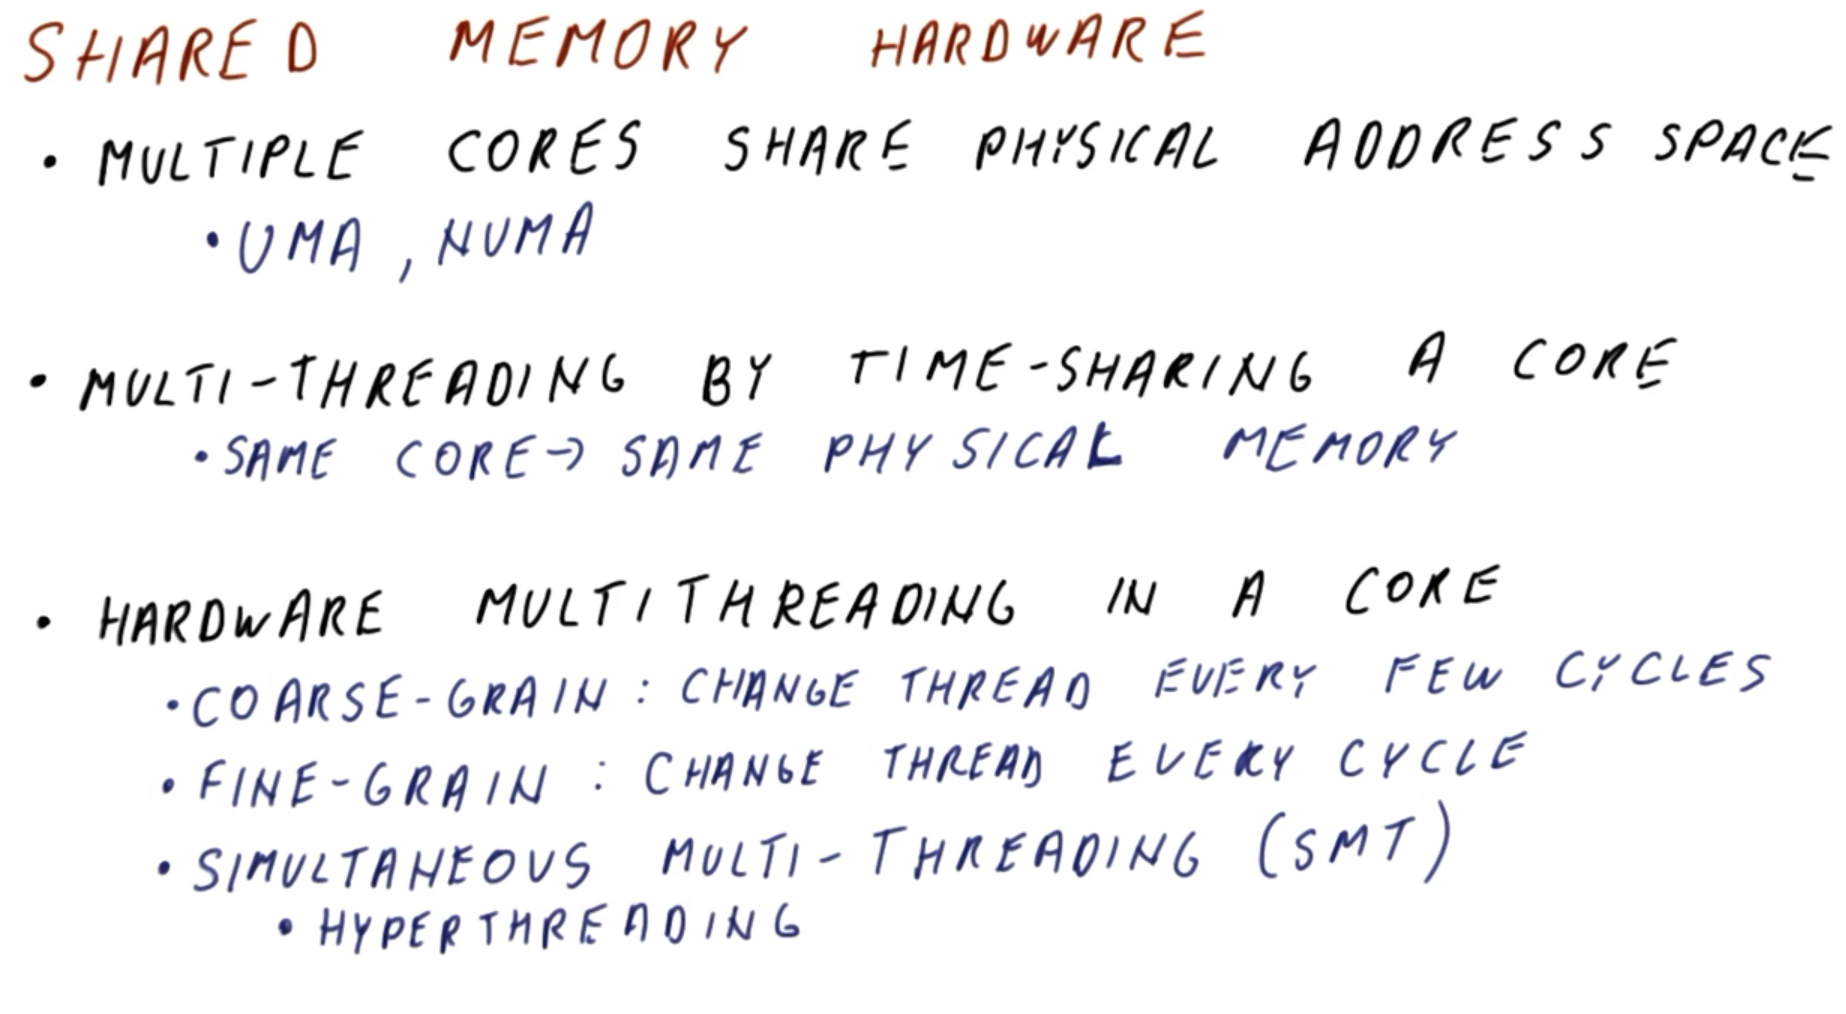 SHARED MEMORY HARDWARE
• MULTIPLE CORES SHARE PHYSICAL ADDRESS SPACE
• UMA, NUMA
• MULTI-THREADING BY TIME-SHARING A CORE
• SAME CORE → SAME PHYSICAL MEMORY
• HARDWARE MULTITHREADING IN A CORE
• COARSE-GRAIN : CHANGE THREAD EVERY FEW CYCLES
• FINE-GRAIN : CHANGE THREAD EVERY CYCLE
• SIMULTANEOUS MULTI-THREADING (SMT)
• HYPERTHREADING